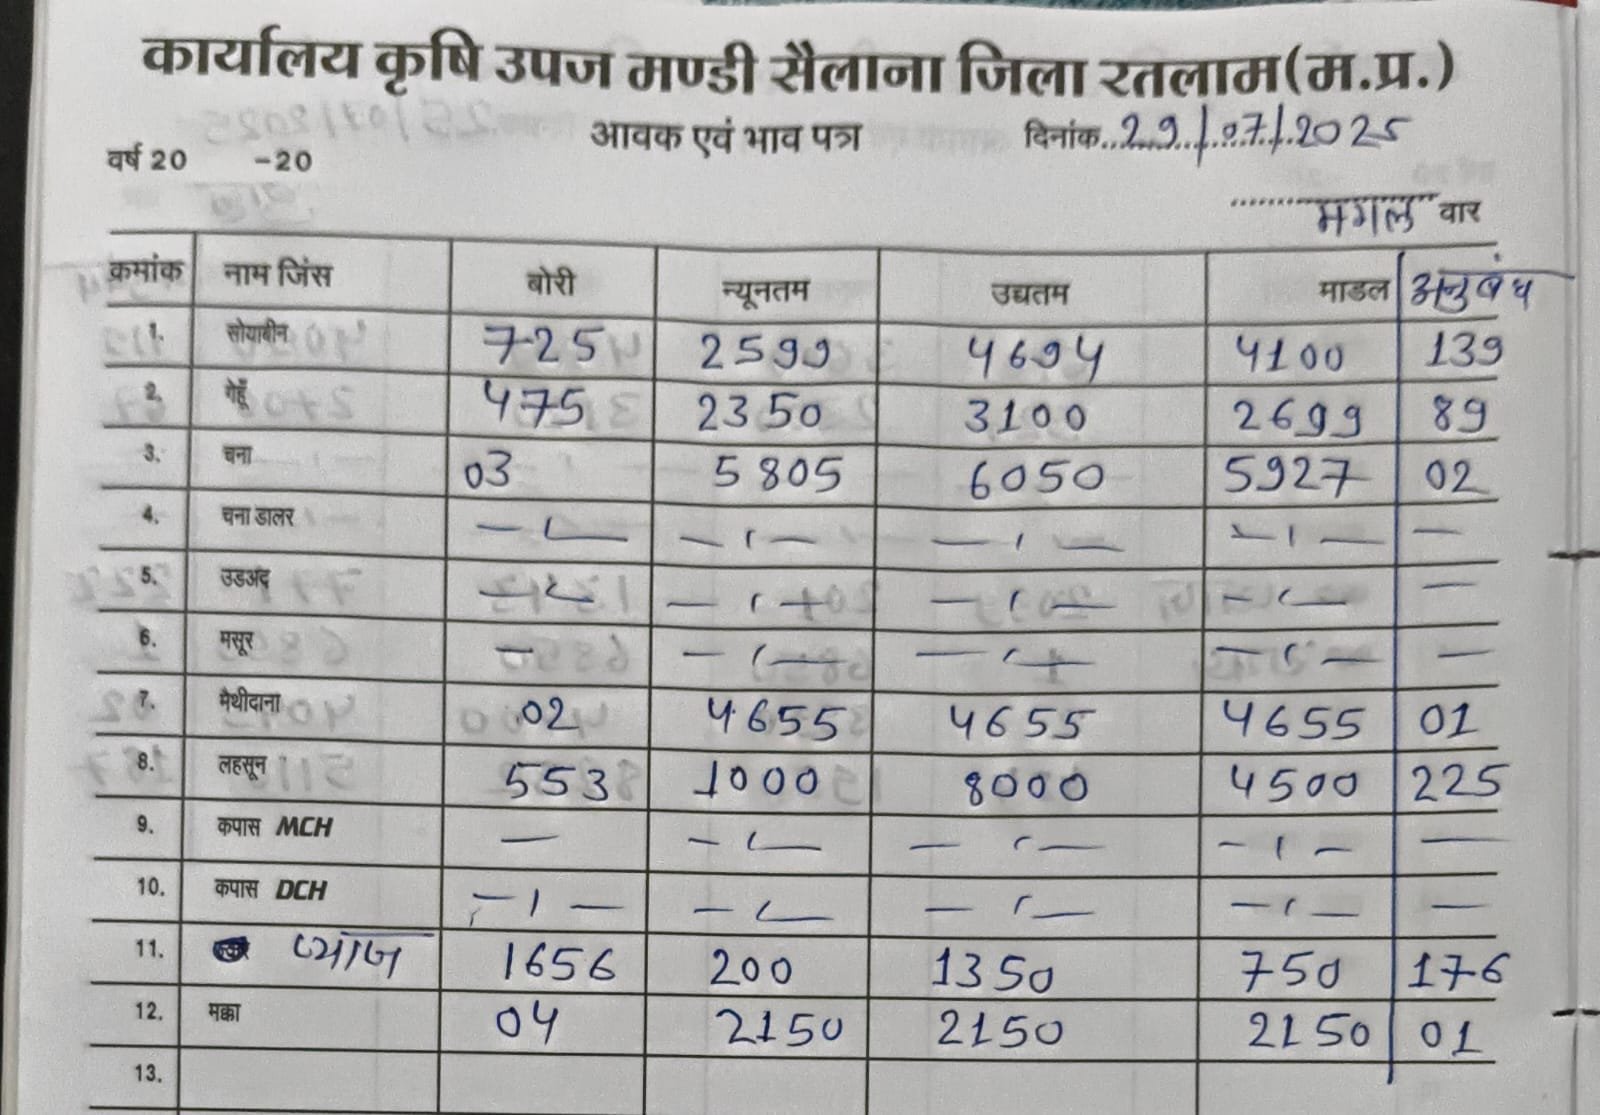 कार्यालय कृषि उपज मण्डी सैलाना जिला रतलाम(म.प्र.)
आवक एवं भाव पत्र दिनांक..29/07/2025
वर्ष 20 -20
मगल वार
क्रमांक नाम जिंस बोरी न्यूनतम उद्यतम माडल अनुबंध
1. सोयाबीन 725 2599 4694 4100 139
2. गेहूँ 475 2350 3100 2699 89
3. चना 03 5805 6050 5927 02
4. चना डालर — ı — — ı — — ı — — ı — —
5. उडअद — ı — — ı — — ı — — ı — —
6. मसूर — — ı — — ı — — ı — —
7. मेथीदाना 02 4655 4655 4655 01
8. लहसून 553 1000 8000 4500 225
9. कपास MCH — — ı — — ı — — ı — —
10. कपास DCH — ı — — ı — — ı — — ı — —
11. प्याज 1656 200 1350 750 176
12. मक्का 04 2150 2150 2150 01
13.